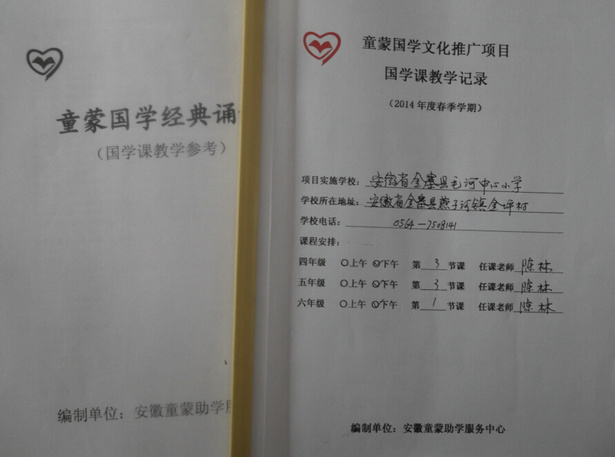 童蒙国学经典诵
（国学课教学参考）
编制单位：安徽童蒙助学
童蒙国学文化推广项目
国学课教学记录
（2014年度春季学期）
项目实施学校：安徽省金寨县毛河中心小学
学校所在地址：安徽省金寨县燕子河镇金坪村
学校电话：0564-7508141
课程安排：
四年级 〇上午 〇下午 第 3 节课 任课老师 陈林
五年级 〇上午 〇下午 第 3 节课 任课老师 陈林
六年级 〇上午 〇下午 第 1 节课 任课老师 陈林
编制单位：安徽童蒙助学服务中心